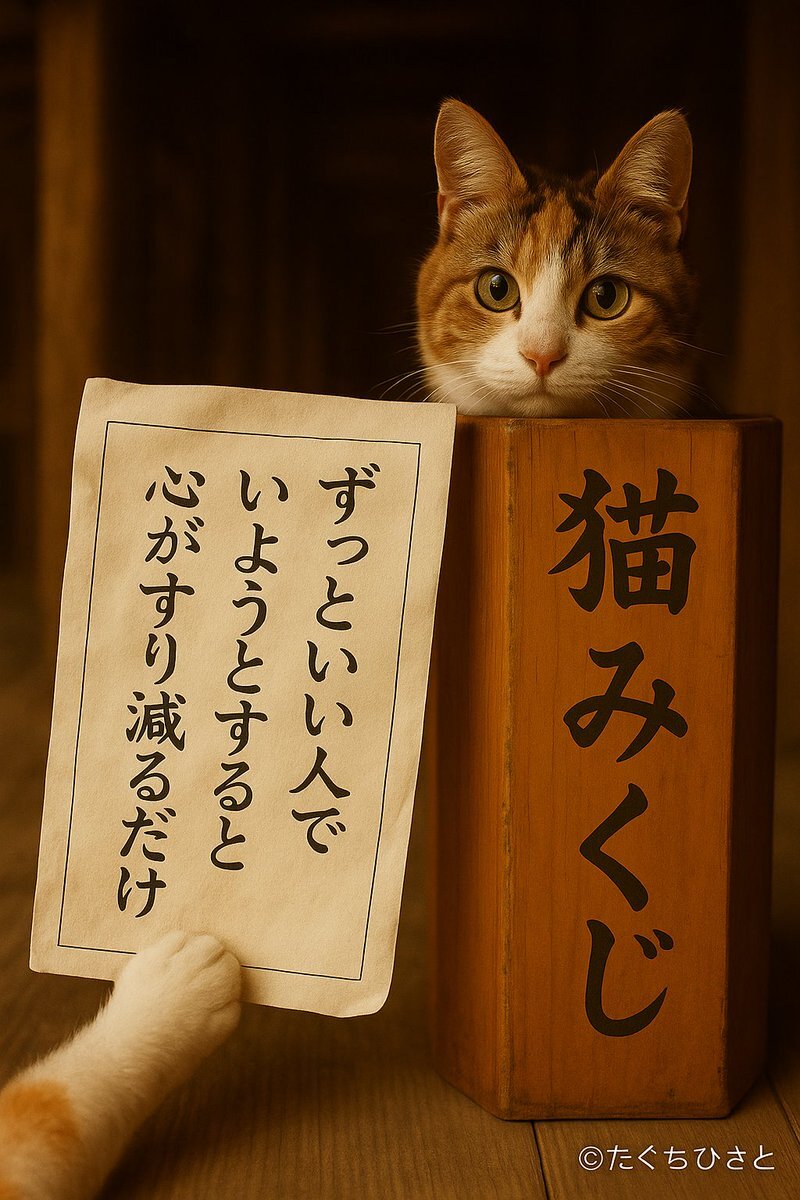 ずっといい人で
いようとすると
心がすり減るだけ
猫みくじ
©たぐちひさと